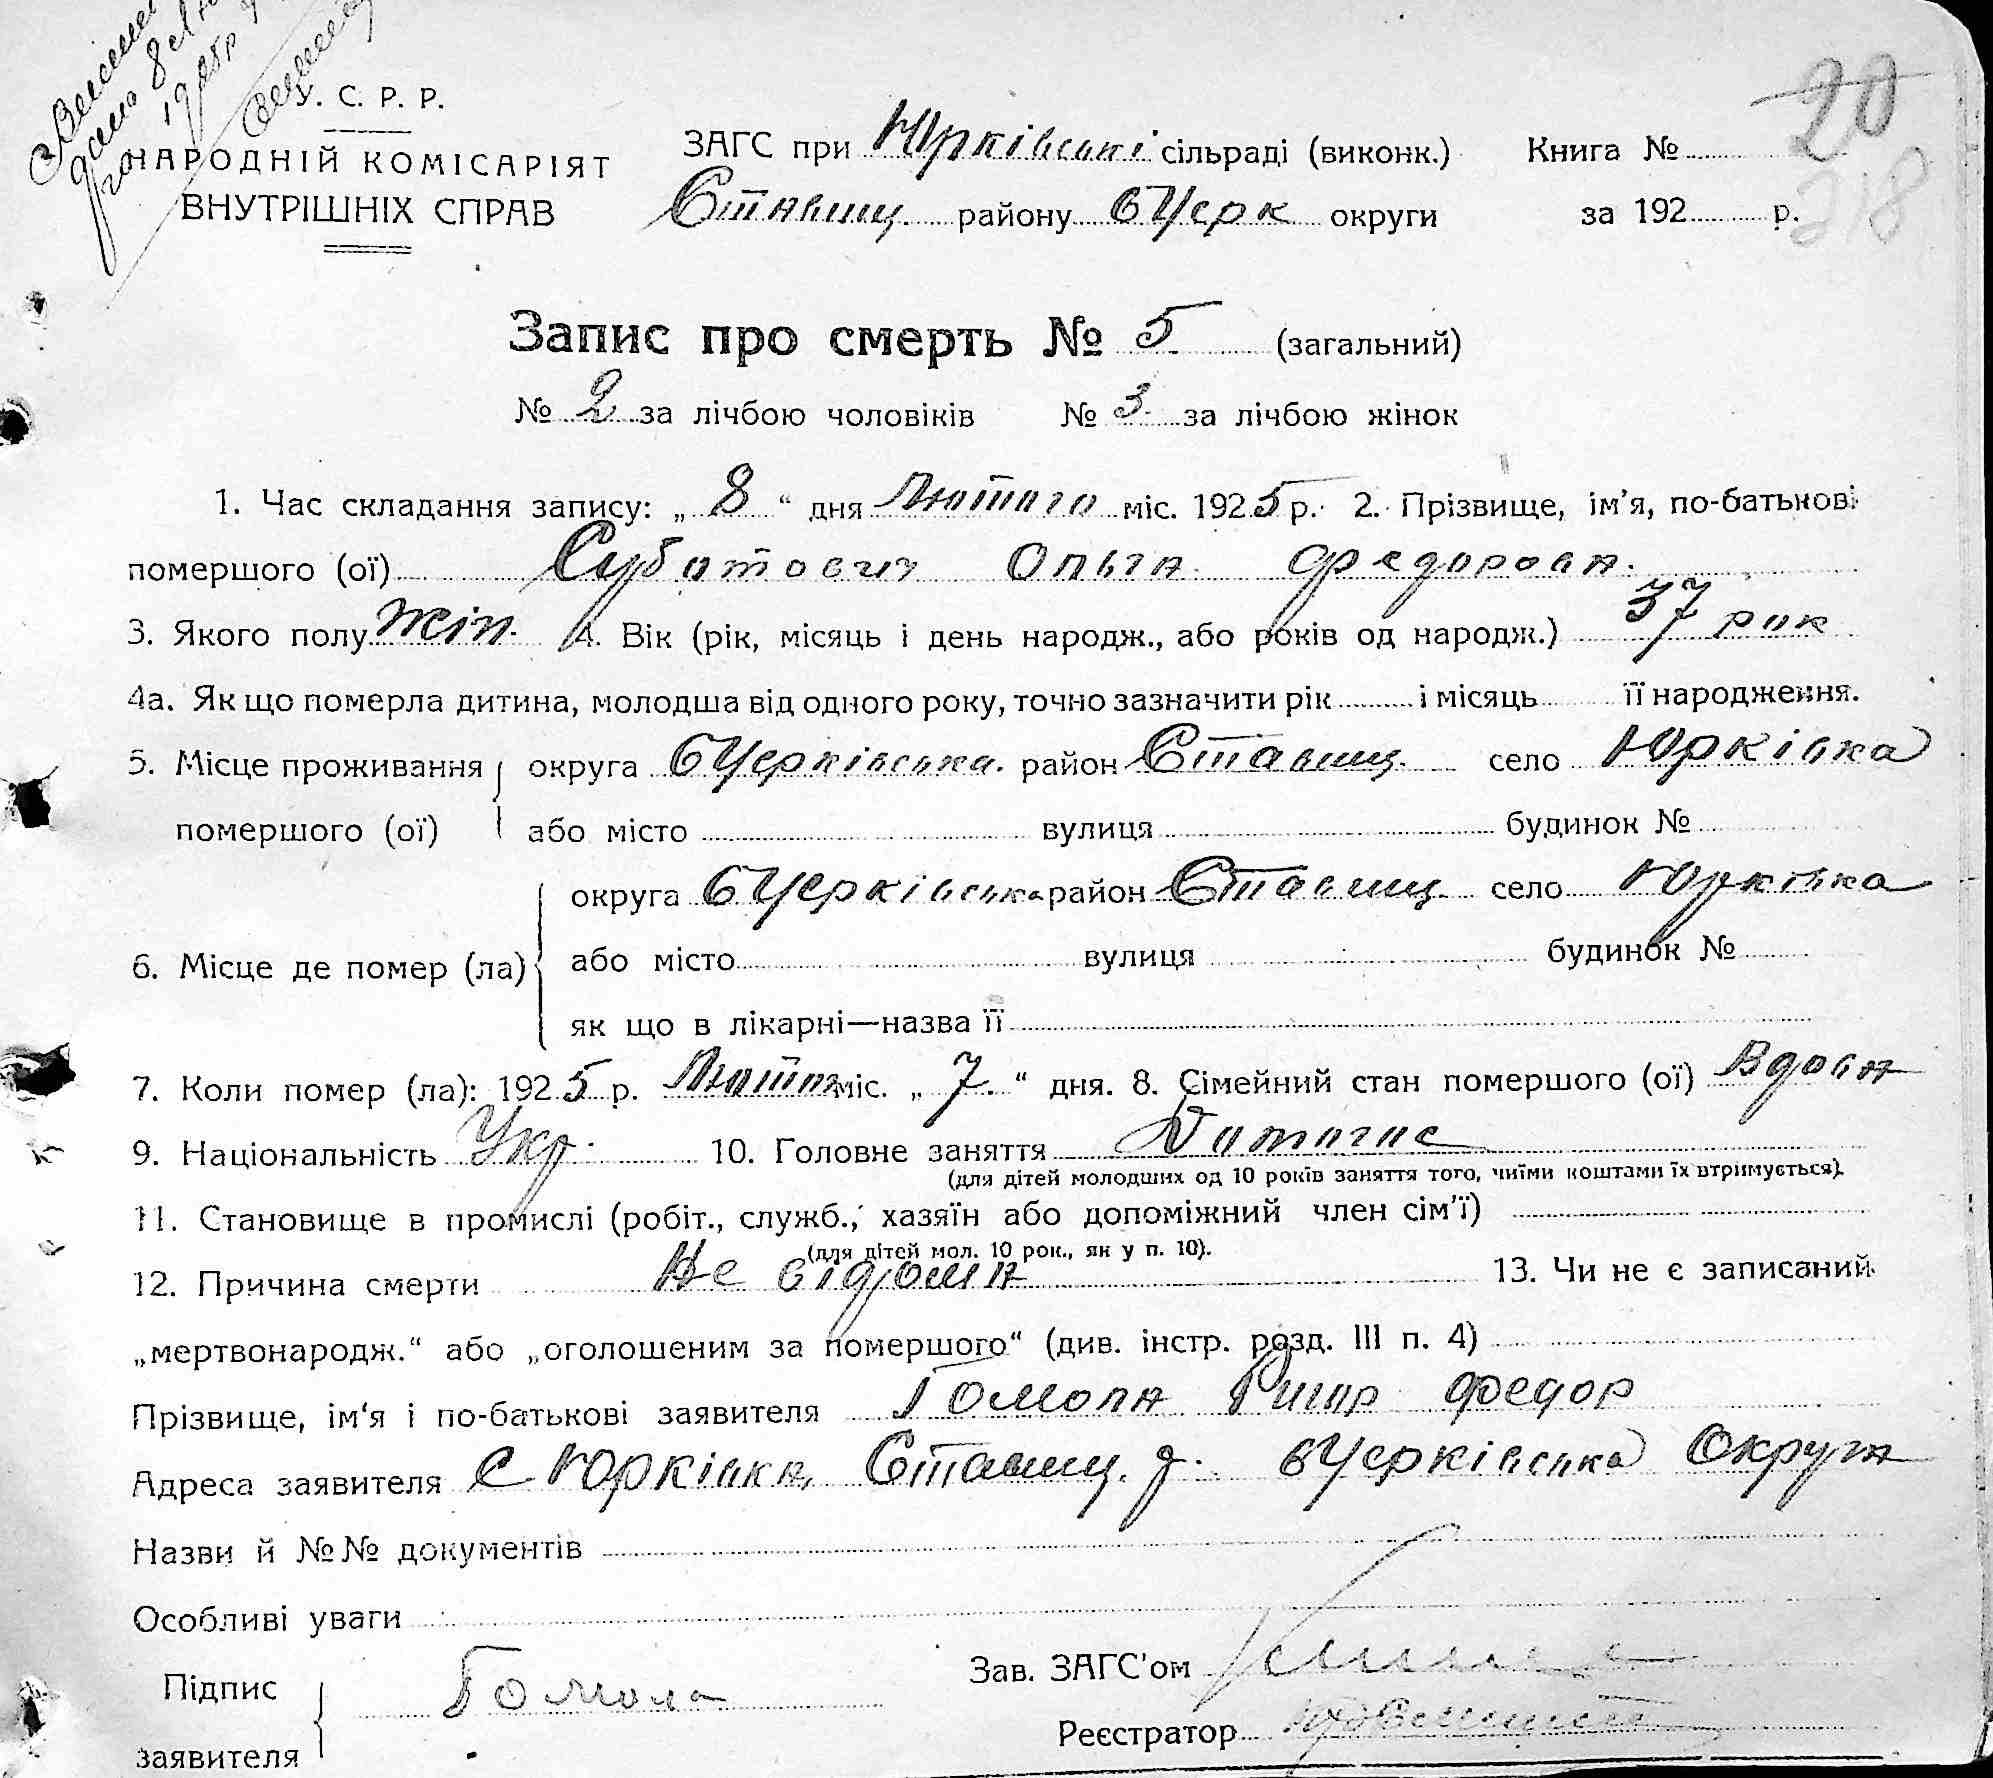 У. С. Р. Р.
НАРОДНІЙ КОМІСАРІЯТ
ВНУТРІШНІХ СПРАВ
ЗАГС при Юрківські сільраді (виконк.) Книга № 20
Ставищ. району БЦерк округи за 192 р. 218
Запис про смерть № 5 (загальний)
№ 2 за лічбою чоловіків № 3 за лічбою жінок
1. Час складання запису: „ 8 “ дня Лютого міс. 1925 р. 2. Прізвище, ім'я, по-батькові
помершого (ої) Суботович Ольга Федоровн.
3. Якого полу жін. 4. Вік (рік, місяць і день народж., або років од народж.) 37 рок
4а. Як що померла дитина, молодша від одного року, точно зазначити рік і місяць її народження.
5. Місце проживання округа БЦерківська. район Ставищ. село Юрківка
помершого (ої) або місто вулиця будинок №
округа БЦерківська район Ставищ. село Юрківка
6. Місце де помер (ла) або місто вулиця будинок №
як що в лікарні—назва її
7. Коли помер (ла): 1925 р. Лютого міс. „ 7. “ дня. 8. Сімейний стан помершого (ої) Вдова
9. Національність Укр. 10. Головне заняття
(для дітей молодших од 10 років заняття того, чиїми коштами їх втримується).
11. Становище в промислі (робіт., служб., хазяїн або допоміжний член сім'ї)
(для дітей мол. 10 рок., як у п. 10).
12. Причина смерти Не відома 13. Чи не є записаний
„мертвонародж.“ або „оголошеним за помершого“ (див. інстр. розд. III п. 4)
Прізвище, ім'я і по-батькові заявителя Гомола Федор
Адреса заявителя с Юрківка, Ставищ. р. БЦерківська Округа
Назви й №№ документів
Особливі уваги
Підпис Гомола Зав. ЗАГС'ом
заявителя Реєстратор